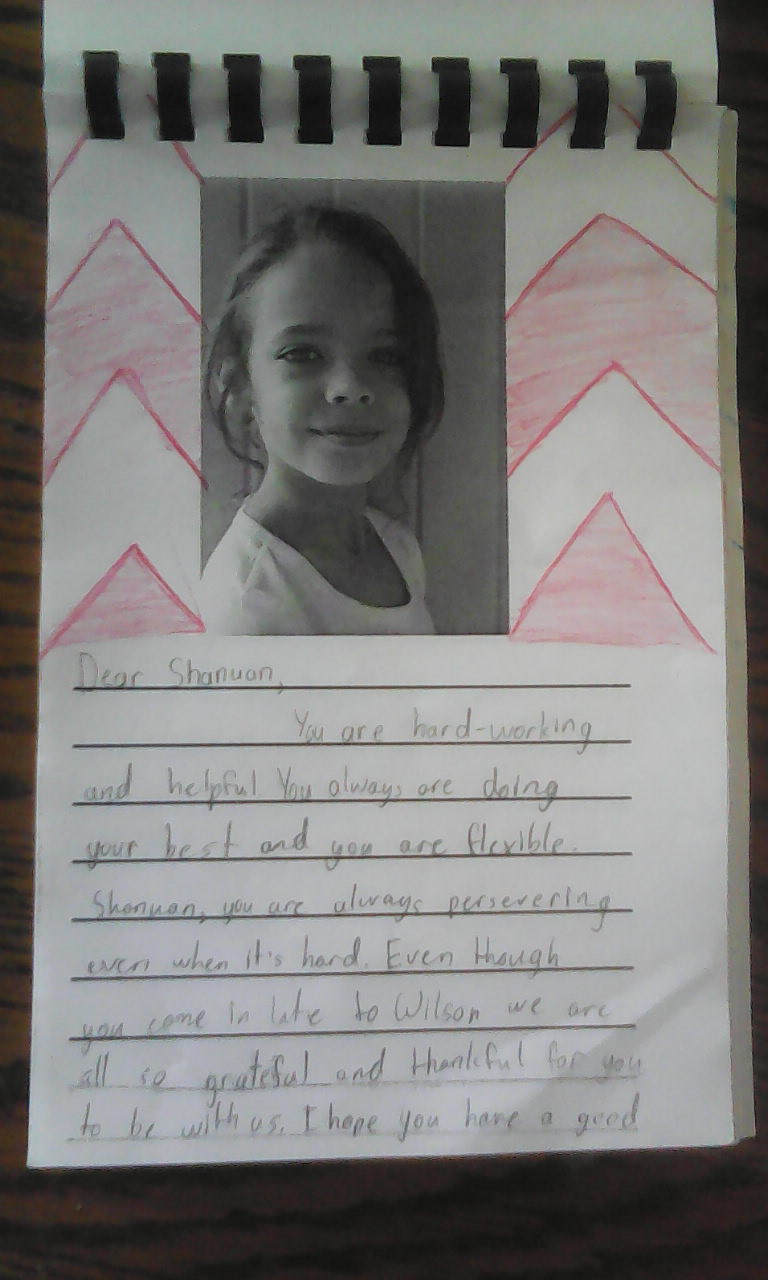 Dear Shanuan,
You are hard-working
and helpful You always are doing
your best and you are flexible.
Shanuan, you are always persevering
even when it's hard. Even though
you come in late to Wilson we are
all so grateful and thankful for you
to be with us. I hope you have a good